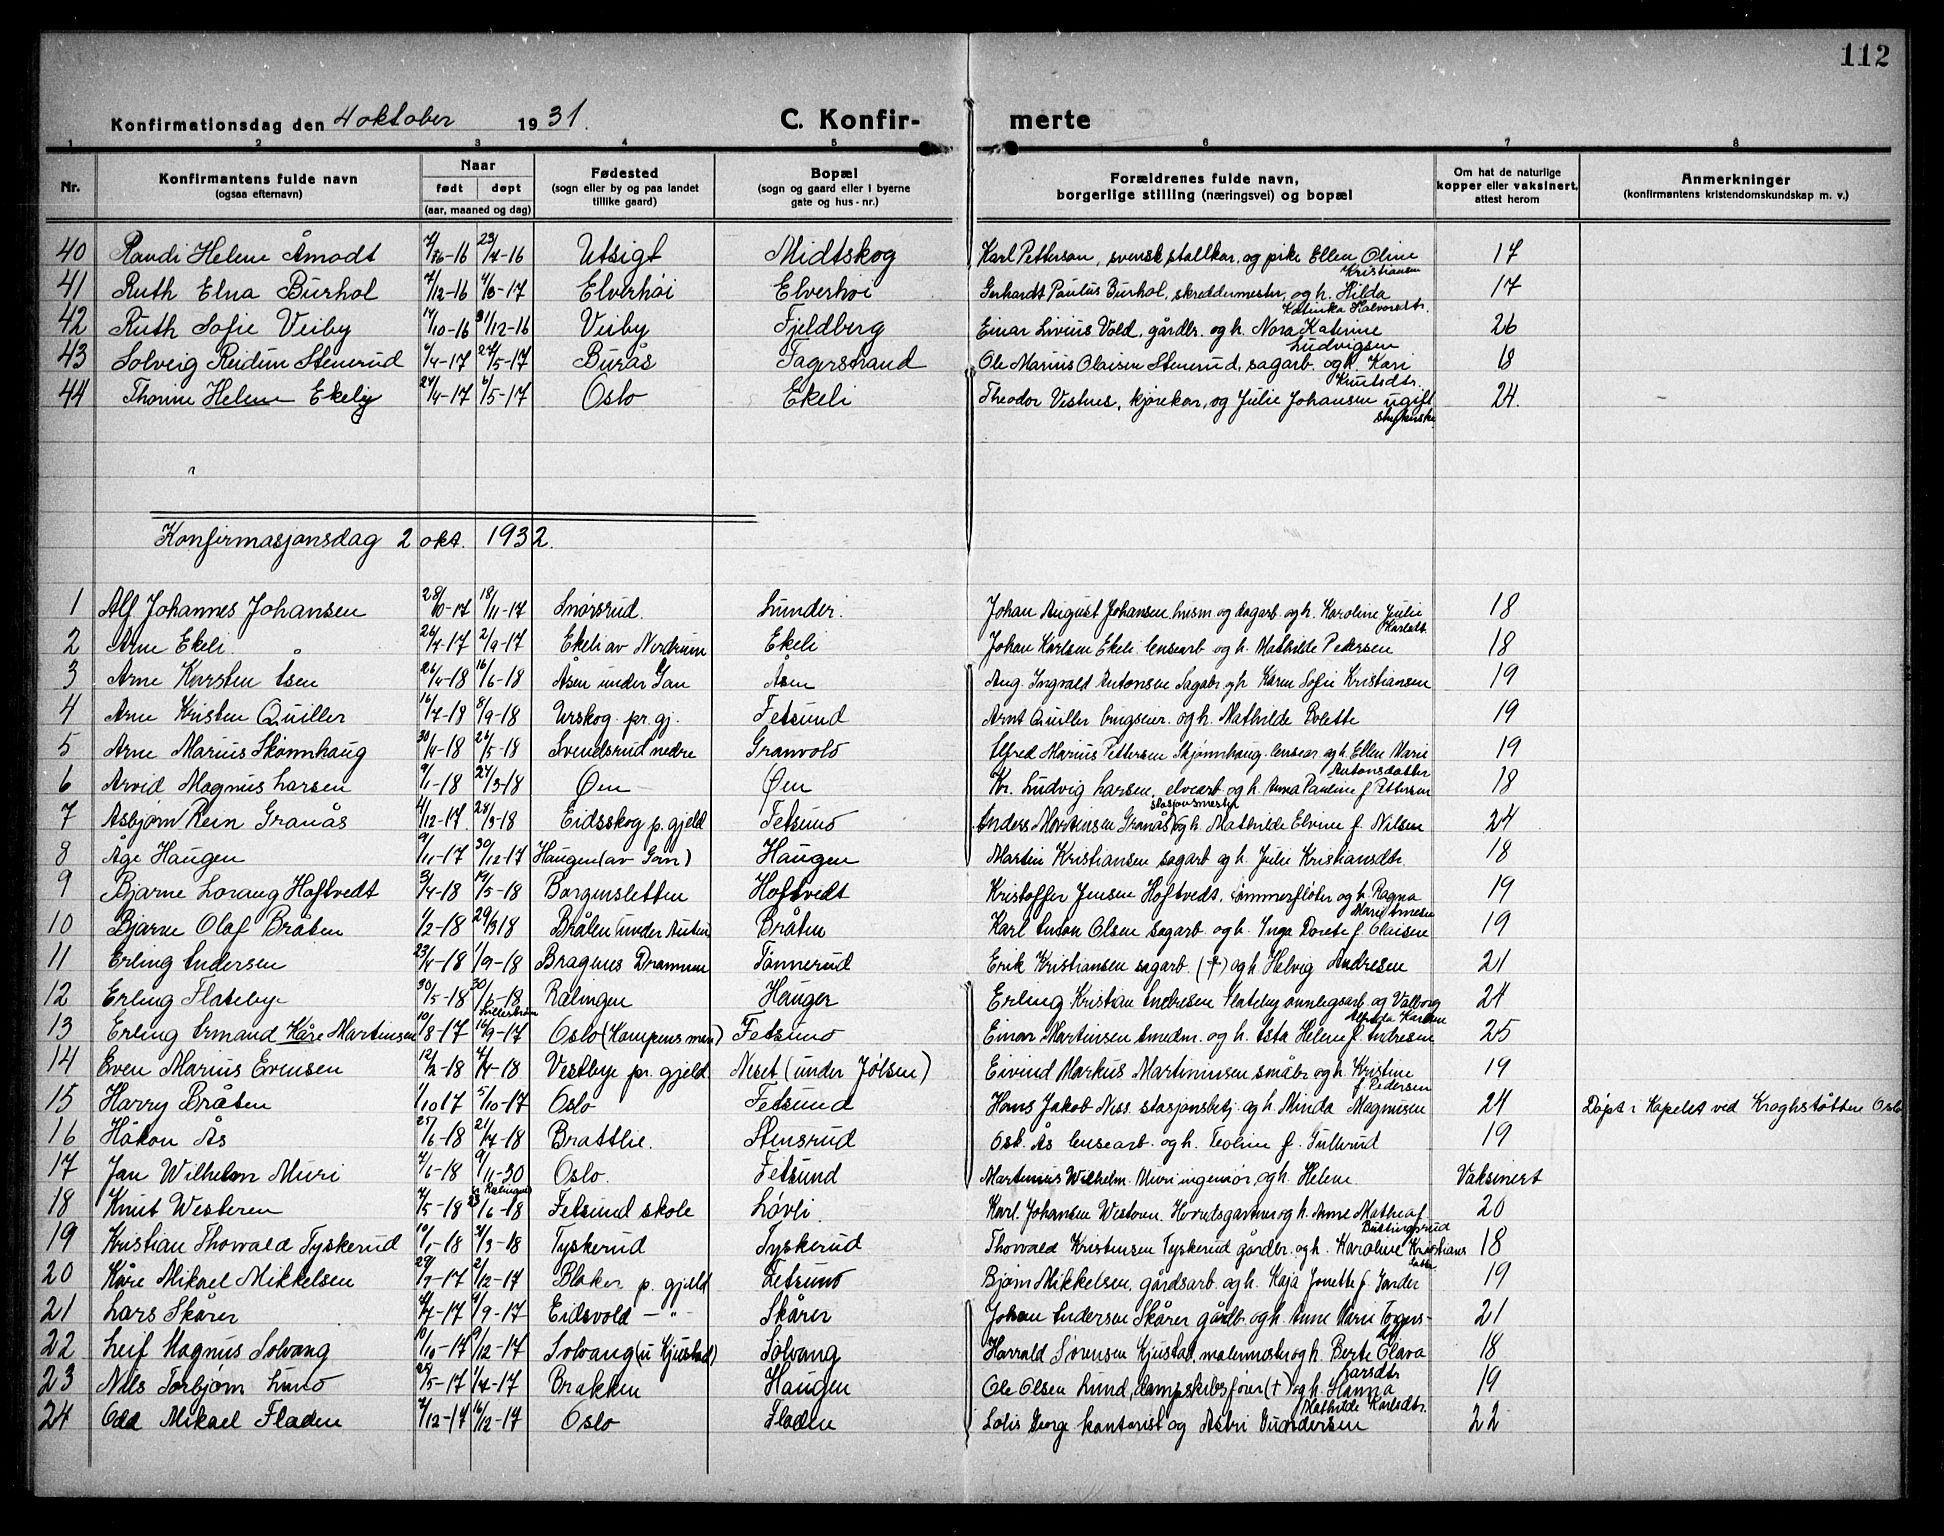 112
Konfirmationsdag den 4 oktober 1931. C. Konfir- merte
1 2 3 4 5 6 7 8
Nr. Konfirmantens fulde navn (ogsaa efternavn) Naar født døpt (aar, maaned og dag) Fødested (sogn eller by og paa landet tillike gaard) Bopæl (sogn og gaard eller i byerne gate og hus-nr.) Forældrenes fulde navn, borgerlige stilling (næringsvei) og bopæl Om hat de naturlige kopper eller vaksinert, attest herom Anmerkninger (konfirmantens kristendomskundskap m. v.)
40 Randi Helene Åmodt 23/4-16 Utsigt Midtskog Karl Petterson, svensk stallkar, og pike Ellen Oline Kristiansen 17
41 Ruth Elna Burhol 7/12-16 4/3-17 Elverhøi Elverhøi Gerhardt Paulus Burhol, skreddermester, og h. Hilda Katinka Halvorsdtr. 17
42 Ruth Sofie Veiby 17/10-16 31/12-16 Veiby Fjeldberg Einar Livius Vold, gårdbr. og h. Nora Katerine Ludvigsen 26
43 Solveig Reidun Stenerud 9/4-17 27/5-17 Burås Fagerstrand Ole Marius Olaisen Stenerud, sagarb. og h. Kari Knutsdtr. 18
44 Thorine Helene Ekeliy 24/4-17 6/5-17 Oslo Ekeli Theodor Vestnes, kjørekar, og Julie Johansen ugift 24.
Konfirmasjonsdag 2 okt. 1932.
1 Alf Johannes Johansen 28/10-17 18/11-17 Snørsrud. Lunder. Johan August Johansen husm og sagarb og h. Karoline Julie Karlsdt. 18
2 Arne Ekeli 26/4-17 2/9-17 Ekeli av Nordrum Ekeli Johan Karlsen Ekeli lensearb og h. Mathilde Pedersen 18
3 Arne Karsten Åsen 26/4-18 16/6-18 Åsen under Gan Åsen Aug. Ingvald Antonsen Sagabr og h Karen Sofie Kristiansen 19
4 Arne Kristen Quiller 16/7-18 8/9-18 Urskog pr. gj. Fetsund Arnt Quiller Ingeniør. og h. Mathilde Bolette 19
5 Arne Marius Skønnhaug 30/4-18 26/5-18 Svendsrud nedre Granvold Alfred Marius Pettersen Skjønnhaug lensear og h Ellen Marie Antonsdatter 19
6 Arvid Magnus Larsen 9/1-18 24/3-18 Øen Øen Kr. Ludvig Larsen, elvearb og h. Anna Pauline f. Pettersen 18
7 Asbjørn Rein Granås 4/12-17. 28/3-18 Eidsskog p. gjeld Fetsund Anders Mortensen Granås stasjonsmester og h. Mathilde Elvine f. Nilsen 24
8 Åge Haugen 9/11-17 30/12-17 Haugen (av Gan) Haugen Martin Kristiansen sagarb og h. Julie Kristiansdtr 18
9 Bjarne Lorang Hoftvedt 3/4-18 19/5-18 Borgensletten Hoftvedt Kristoffer Jensen Hoftvedt, tømmerfløter og h. Ragna Marie Arnesen 19
10 Bjarne Olaf Bråten 1/2-18 29/3 18 Bråten (under Auten Bråten Karl Anton Olsen sagarb. og h. Inga Dorete f. Olaisen 19
11 Erling Andersen 23/4-18 1/9-18 Bragenes Drammen Tønnerud Erik Kristiansen sagarb. (†) og h Helvig Andresen 21
12 Erling Flateby 30/5-18 30/6-18 Lillestrøm Rælingen Hauger Erling Kristian Andresen Flateby anlegsarb og Valborg Alfrida Karlsen 24
13 Erling Armand Kåre Martinsen 10/8-17 16/9-17 Oslo (Kampens men) Fetsund Einar Martinsen smedm. og h. Asta Helene f. Andresen 25
14 Even Marius Evensen 12/2-18 4/4-18 Vestbye pr. gjeld Neset (under Jølsen) Eivind Markus Martininsen småbr og h. Kristine f Pedersen 19
15 Harry Bråten 1/10 17 5/10-17 Oslo Fetsund Hans Jakob Niss stasjonsbetj. og h. Minda Magnusen 24 Døpt i Kapelet ved Kroghstøtten Oslo
16 Håkon Ås 25/6-18 21/4-18 Brattlie. Stensrud Osk. Ås lensearb. og h. Teoline f. Tullerud 19
17 Jan Wilhelm Muri 4/6-18 9/11-30 Oslo. Fetsund Martinius Wilhelm Muri ingeniør, og h. Helene. Vaksinert
18 Knut Westeren 7/5-18 23/6-18 Fetsund skole Løvli. Karl. Johansen Westeren. og h. Anne Mathea f. Bustingsrud 20
19 Kristian Thorvald Tyskerud 10/1-18 3/3-18 Tyskerud Tyskerud Thorvald Kristensen Tyskerud gårdbr. og h. Karoline Kristiansdatter 18
20 Kåre Mikael Mikkelsen 29/9-17 2/12-17 Blaker p. gjeld Fetsund Bjørn Mikkelsen, gårdsarb. og h. Kaja Jonette f. Jonder 19
21 Lars Skårer 4/7-17 9/9-17 Eidsvold —"— Skårer Johan Andersen Skårer gårdb. og h. Anne Marie Torgers- 21
22 Leif Magnus Solvang 10/10-17 9/12-17 Solvang (u Kjustad) Solvang Harrald Sørensen Kjustad, malermester og h. Berte Olava Larsdtr 18
23 Nils Torbjørn Lund 28/5-17 1/4-17 Brakken Haugen Ole Olsen Lund, dampskibsfører (†) og h. Hanna Mathilde Karlsdtr. 19
24 Odd Mikael Fladen 7/12-17 16/12-17 Oslo Fladen George kontorist og Astri Gundersen 22